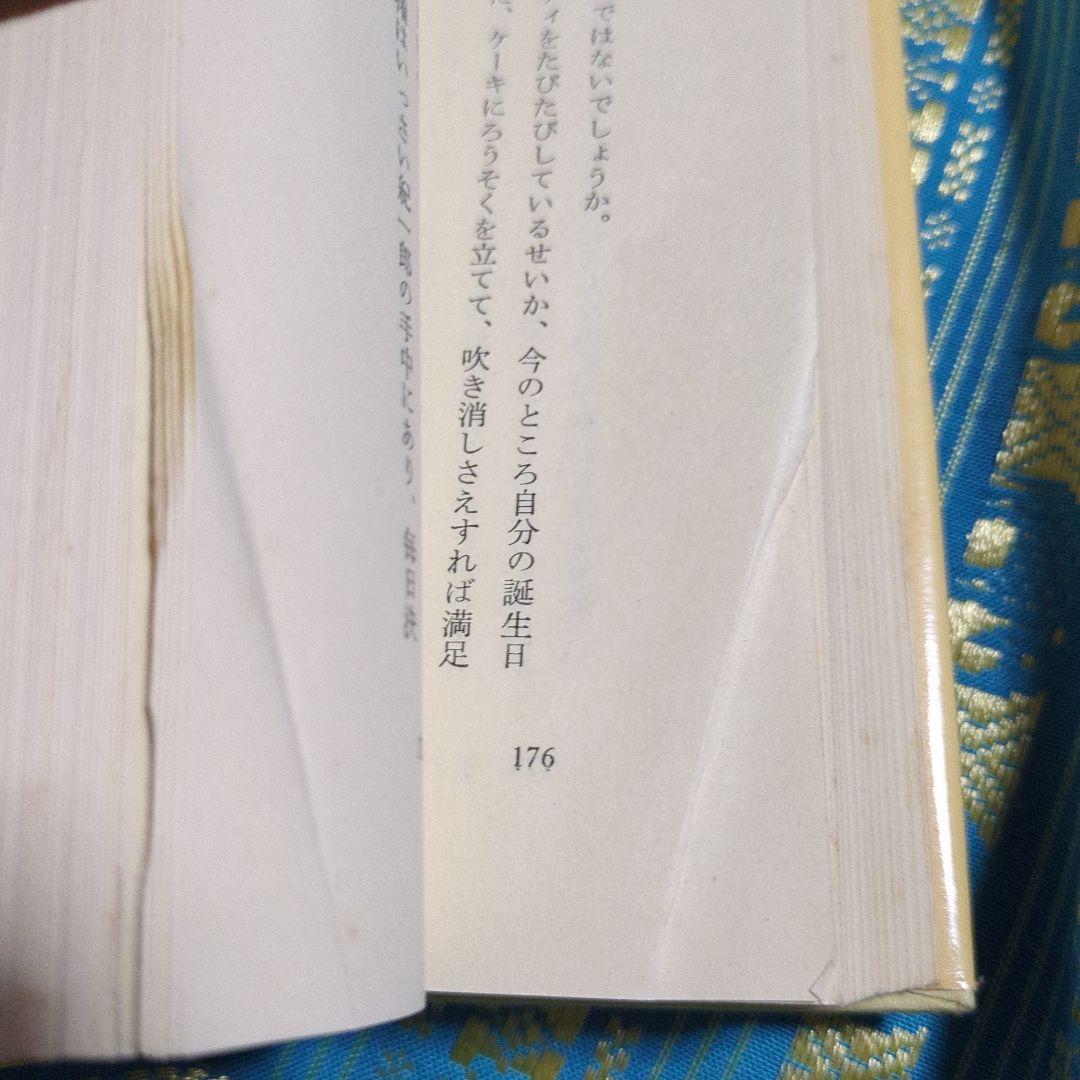 ではないでしょうか。
ィをたびたびしているせいか、今のところ自分の誕生日
、ケーキにろうそくを立てて、吹き消しさえすれば満足
176
の手中にあり、毎日